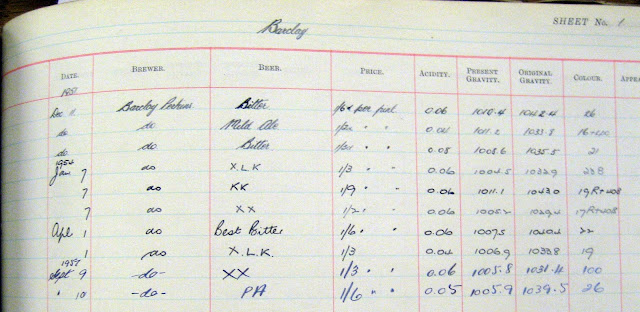 SHEET No. 1
Barclay
DATE. BREWER. BEER. PRICE. ACIDITY. PRESENT GRAVITY. ORIGINAL GRAVITY. COLOUR. APPEA
Dec 11 Barclay Perkins Bitter per pint 0.06 1010.4 1042.4 26
do do Mild Ale " " 0.04 1011.2 1033.8
do do Bitter " " 0.05 1008.6 1035.5 21
1954
Jan 7 do X.L.K 1/3 " " 0.06 1004.5 1032.9
7 do KK 1/9 " " 0.06 1011.1 1043.0
7 do XX " " 0.06 1005.2 1029.4
Apl 1 do Best Bitter 1/6 " " 0.06 1007.5 1040.4 22
1 do X.L.K. 1/3 0.04 1006.9 1032.8 19
Sept 9 -do- XX 1/3 " " 0.06 1005.8 1031.4 100
" 10 -do- PA 1/6 " " 0.05 1005.9 1039.5 26